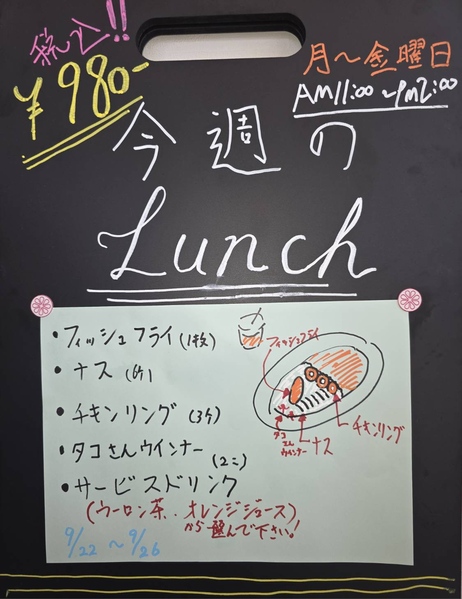 税込!!
¥980-
月〜金曜日
AM11:00〜PM2:00
今週の
Lunch
・フィッシュフライ(1枚)
・ナス
・チキンリング(3ケ)
・タコさんウインナー
(2こ)
・サービスドリンク
(ウーロン茶、オレンジジュース)
から選んで下さい!
9/22 〜 9/26
フィッシュフライ
チキンリング
ナス
タコ
さん
ウインナー